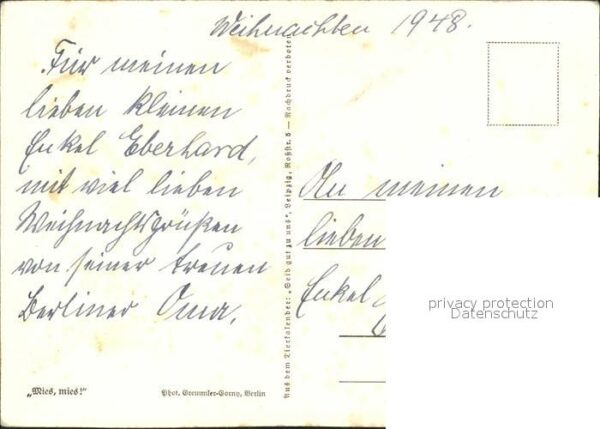 Weihnachten 1948.
Für meinen
lieben kleinen
Enkel Eberhard,
mit viel lieben
Weihnachtsgrüßen
von seiner treuen
Berliner Oma.
An meinen
lieben
Enkel
„Mies, mies!“
Phot. Gremmler-Gorny, Berlin
Aus dem Tierkalender: „Seid gut zu uns“, Leipzig, Roßstr. 8 — Nachdruck verboten
privacy protection
Datenschutz